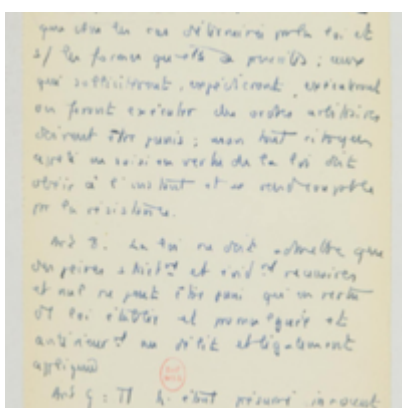 que dans les cas déterminés par la loi et
s/ les formes qu'elle a prescrits ; ceux
qui sollicitent, expédient, exécutent
ou font exécuter des ordres arbitraires
doivent être punis ; mais tout citoyen
appelé ou saisi en vertu de la loi doit
obéir à l'instant et se rend coupable
par la résistance.
Art 8 : La loi ne doit admettre que
des peines strict et évid nécessaires
et nul ne peut être puni qu'en vertu
d loi établie et promulguée et
antérieur au délit et légalement
appliquée
Art 9 : Tt h. étant présumé innocent